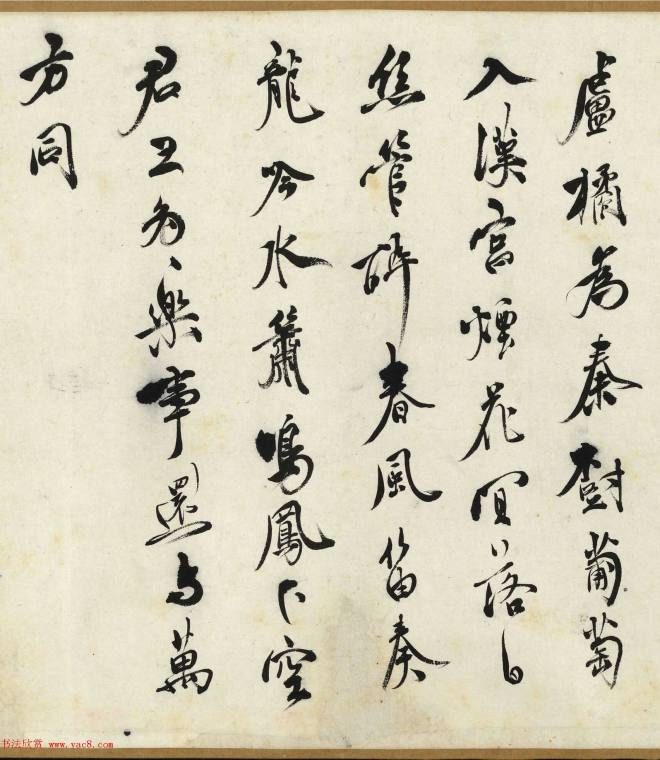 盧橘為秦樹葡萄
入漢宮煙花宜落日
絲管醉春風笛奏
龍吟水簫鳴鳳下空
君王多樂事還与萬
方同
书法欣赏 www.yac8.com